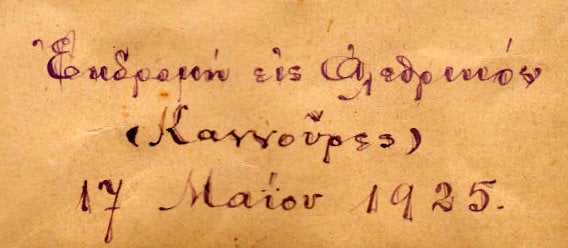 Ἐκδρομή εἰς Ἀλεθρικόν
(Καννοῦρες)
17 Μαΐου 1925.